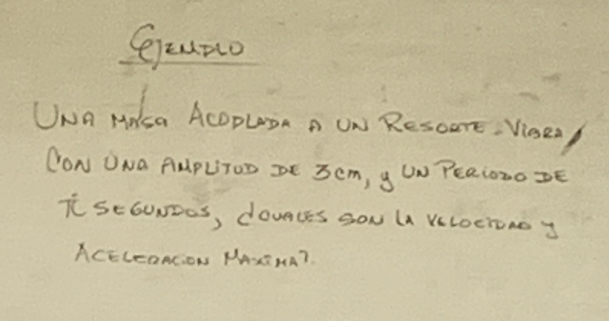 EJEMPLO
UNA MASA ACOPLADA A UN RESORTE VIBRA
CON UNA AMPLITUD DE 3cm, y UN PERIODO DE
π SEGUNDOS, ¿CUALES SON LA VELOCIDAD y
ACELERACION MAXIMA?